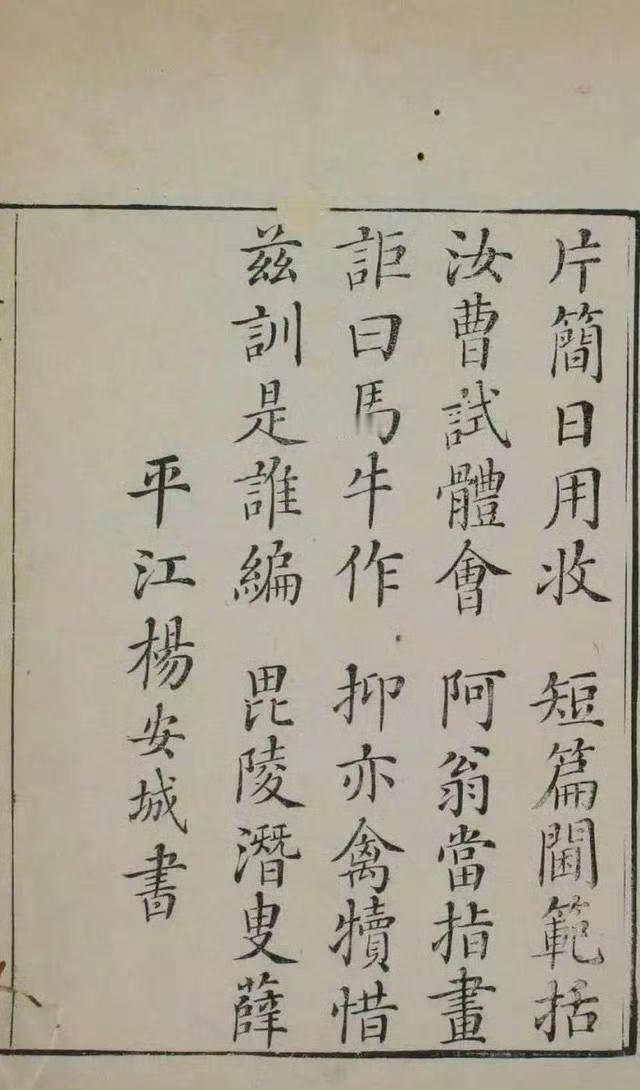 片簡日用收　短篇閫範括
汝曹試體會　阿翁當指畫
詎曰馬牛作　抑亦禽犢惜
茲訓是誰編　毘陵潛叟薛
平江楊安城書